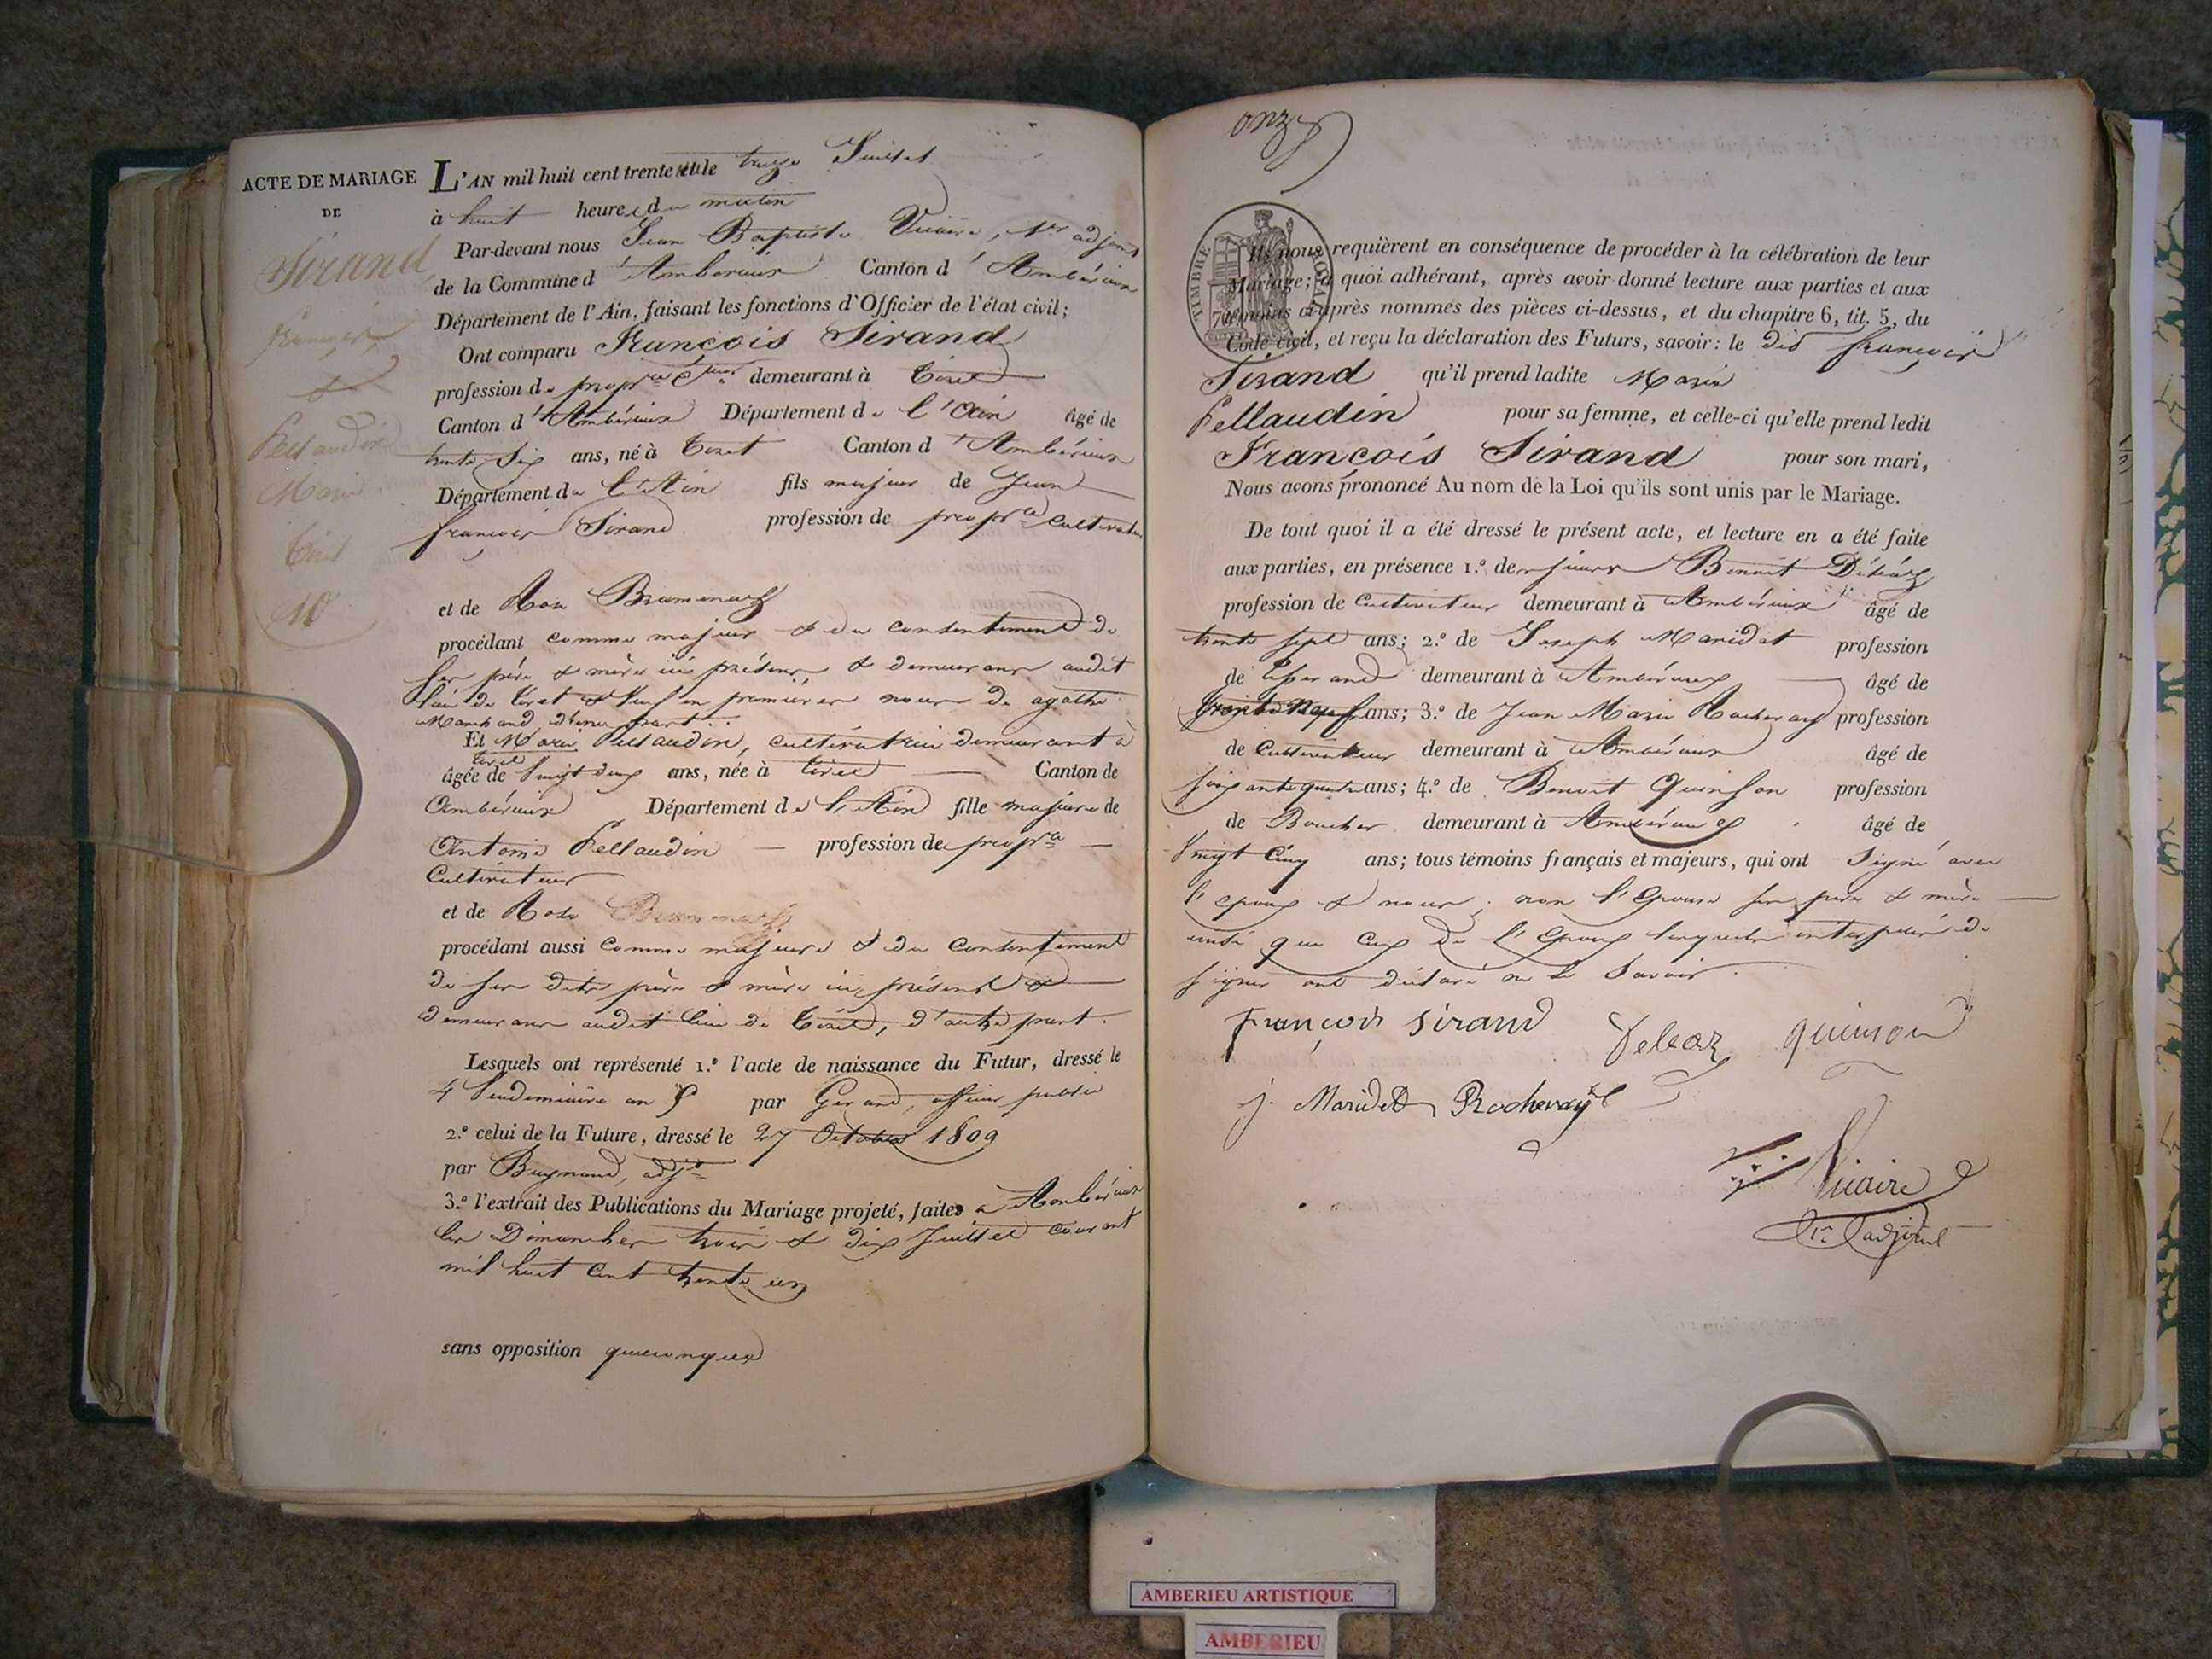 ACTE DE MARIAGE
DE
Sirand
françois
&
Pellaudin
Marie
Tiret
10
L'AN mil huit cent trente et un le treize Juillet
à huit heures du matin
Par-devant nous Jean Baptiste Vicaire, 1er adjoint
de la Commune d'Ambérieux Canton d'Ambérieux
Département de l'Ain, faisant les fonctions d'Officier de l'état civil;
Ont comparu François Sirand
profession de propre Cteur demeurant à Tiret
Canton d'Ambérieux Département de l'Ain âgé de
trente six ans, né à Tiret Canton d'Ambérieux
Département de l'Ain fils majeur de Jean
françois Sirand profession de propre Cultivateur
et de Rose Bramerel
procédant comme majeur & du consentement de
ses père & mère ici présens, & demeurans audit
lieu de Tiret & Veuf en premières noces de agathe
Marchand d'une part
Et Marie Pellaudin, cultivatrice demeurant à
Tiret
âgée de Vingt deux ans, née à Tiret Canton de
Ambérieux Département de l'Ain fille majeure de
Antoine Pellaudin profession de propre
Cultivateur
et de Rose
procédant aussi comme majeure & du consentement
de ses dits père & mère ici présens &
demeurans audit lieu de Tiret, d'autre part.
Lesquels ont représenté 1.º l'acte de naissance du Futur, dressé le
4 Vendemiaire an par Gerand, officier public
2.º celui de la Future, dressé le 27 Octobre 1809
par Buynand, adjt
3.º l'extrait des Publications du Mariage projeté, faites à Ambérieux
les Dimanches trois & dix Juillet courant
mil huit cent trente un
sans opposition quelconque
onze
TIMBRE ROYAL
70
Ils nous requièrent en conséquence de procéder à la célébration de leur
Mariage; à quoi adhérant, après avoir donné lecture aux parties et aux
témoins ci-après nommés des pièces ci-dessus, et du chapitre 6, tit. 5, du
Code civil, et reçu la déclaration des Futurs, savoir: le dit françois
Sirand qu'il prend ladite Marie
Pellaudin pour sa femme, et celle-ci qu'elle prend ledit
François Sirand pour son mari,
Nous avons prononcé Au nom de la Loi qu'ils sont unis par le Mariage.
De tout quoi il a été dressé le présent acte, et lecture en a été faite
aux parties, en présence 1.º de sieurs Benoit Déléaz
profession de Cultivateur demeurant à Ambérieux âgé de
trente sept ans; 2.º de Joseph Maridet profession
de demeurant à Ambérieux âgé de
trente Neuf ans; 3.º de Jean Marie Rocheray profession
de Cultivateur demeurant à Ambérieux âgé de
soixante quatre ans; 4.º de Benoit Quinson profession
de Boucher demeurant à Ambérieux âgé de
Vingt Cinq ans; tous témoins français et majeurs, qui ont Signé avec
l'epoux & nous; non l'Epouse ses père & mère
ainsi que ceux de l'Epoux lesquels interpellés de
signer ont déclaré ne le savoir.
françois sirand Deleaz quinson
j. Maridet Rocheray
Vicaire
1er adjoint
AMBERIEU ARTISTIQUE
AMBERIEU